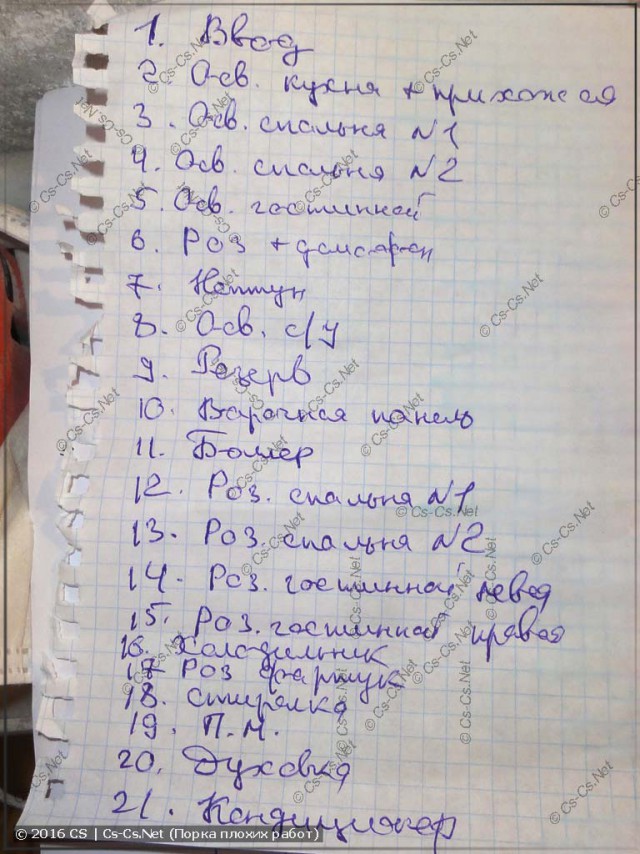 1. Ввод
2. Осв. кухня + прихожая
3. Осв. спальня №1
4. Осв. спальня №2
5. Осв. гостинной
6. Роз + домофон
7. Нептун
8. Осв. с/у
9. Резерв
10. Варочная панель
11. Бойлер
12. Роз. спальня №1
13. Роз. спальня №2
14. Роз. гостинной левая
15. Роз. гостинной правая
16. Холодильник
17 Роз фартук
18. Стиралка
19. П.М.
20. Духовка
21. Кондиционер
© 2016 CS | Cs-Cs.Net (Порка плохих работ)